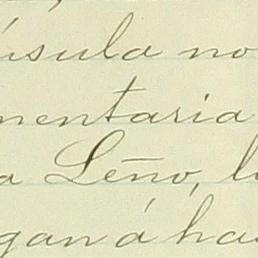 úsula no
mentaria
a Leño, l
gan á ha